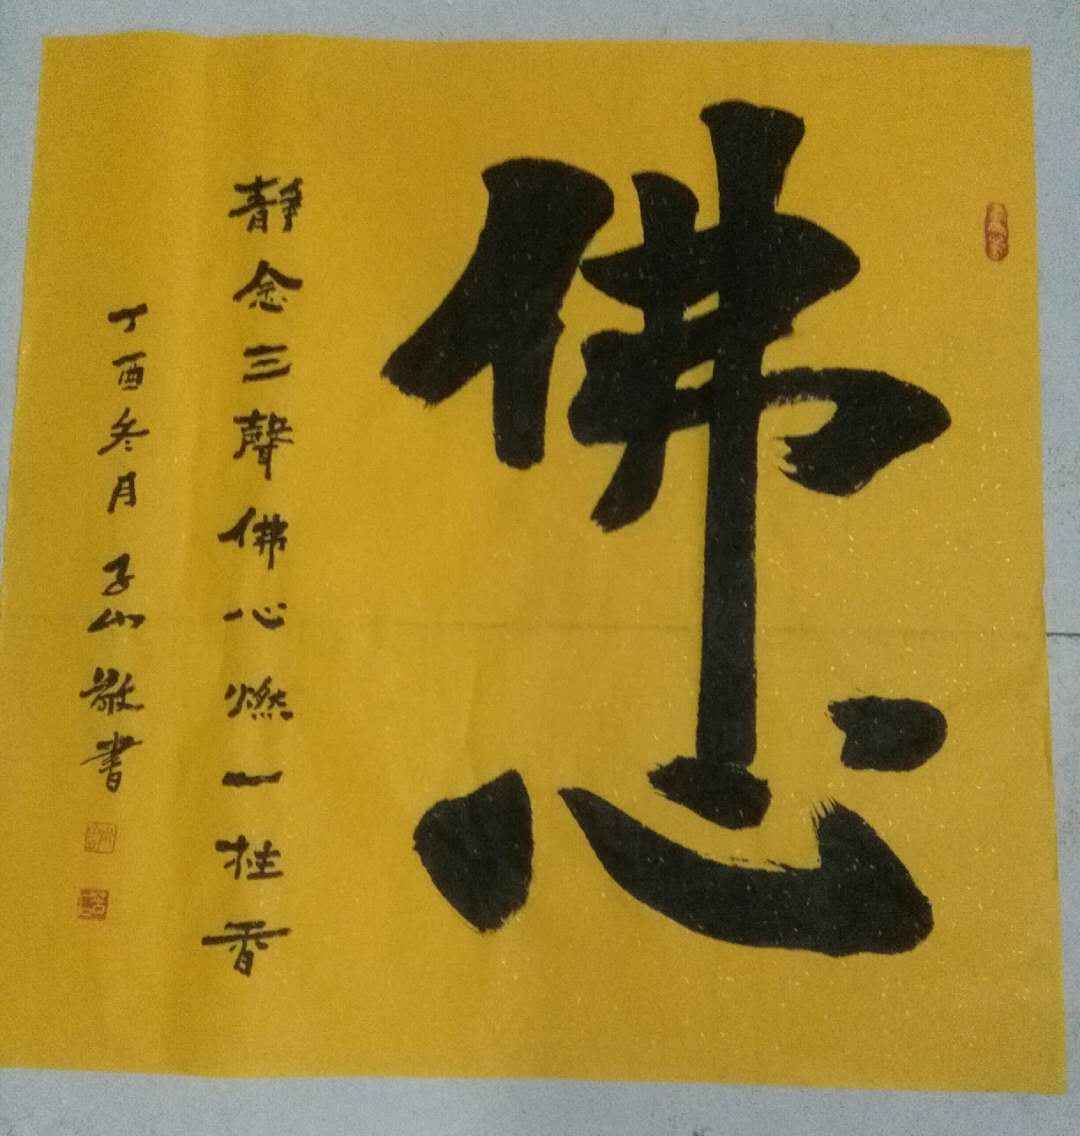 佛心
靜念三聲佛心燃一柱香
丁酉冬月子山敬書